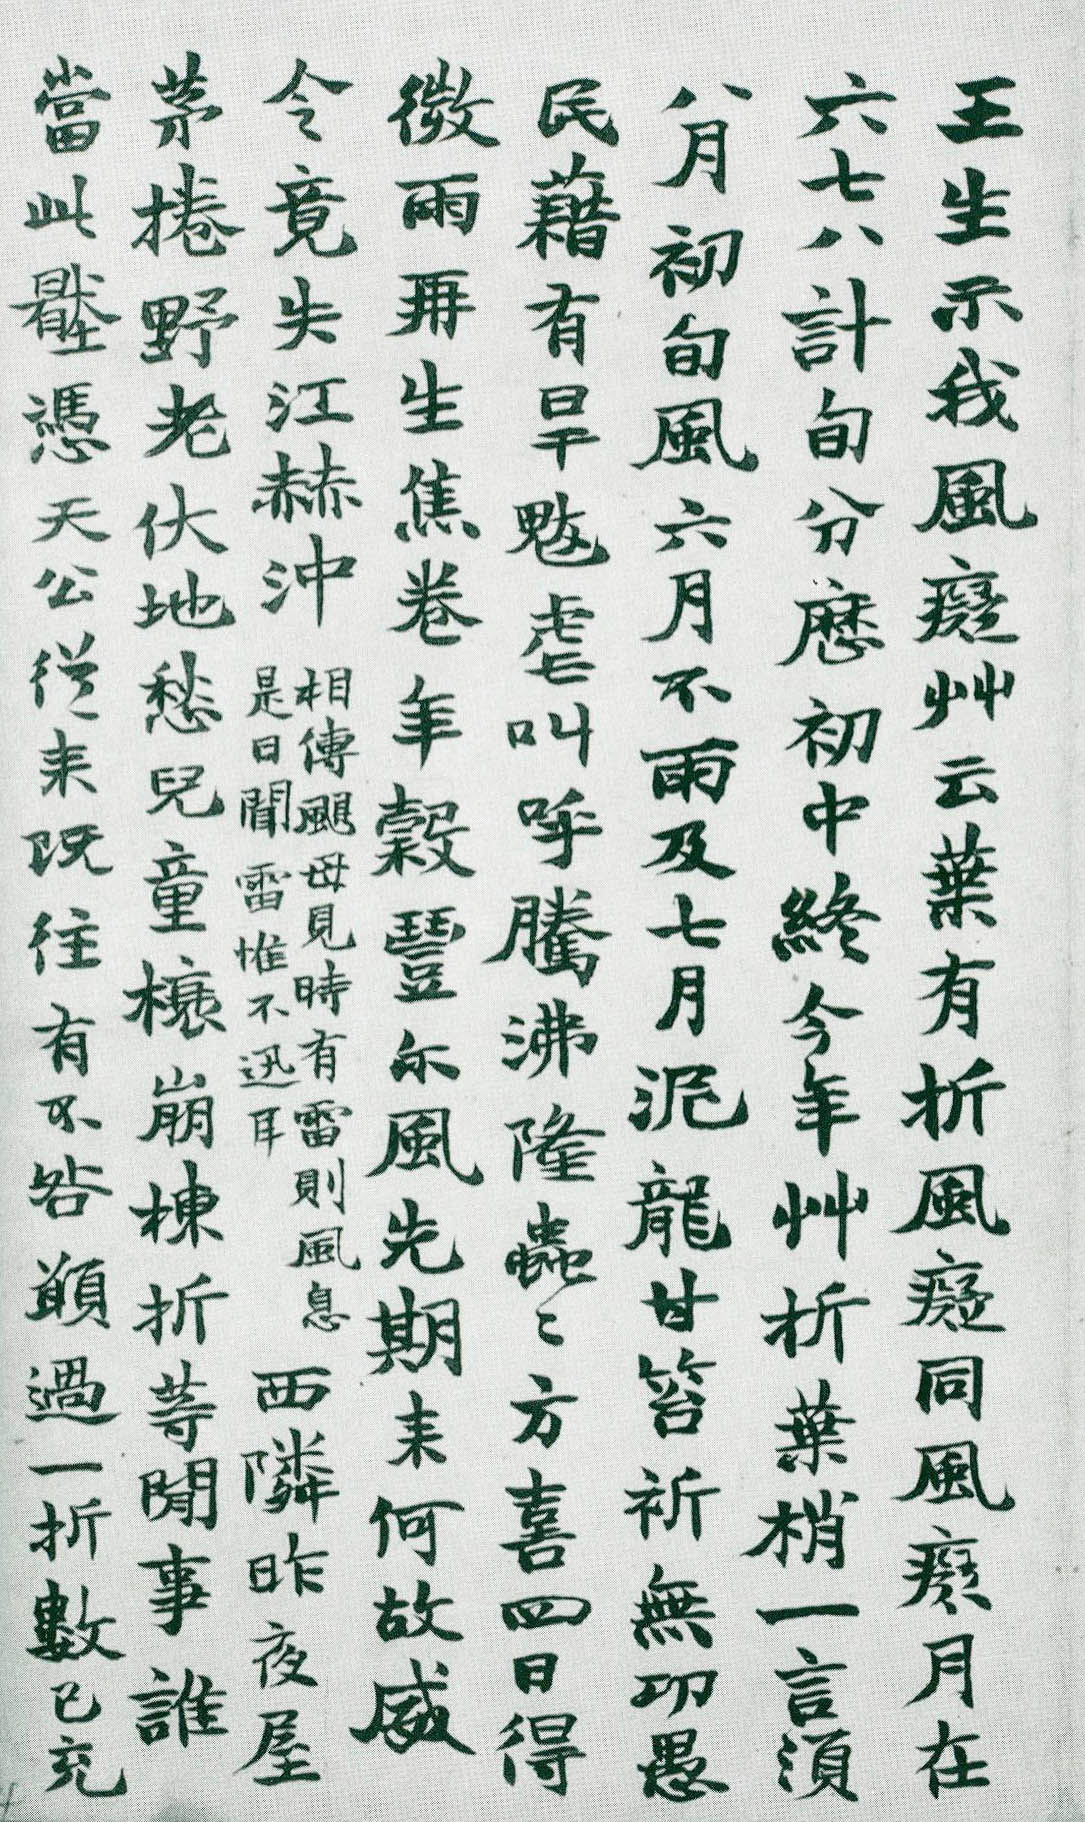 王生示我風癡艸云葉有折風癡同風癡月在
六七八計旬分厯初中終今年艸折葉梢一言須
八月初旬風六月不雨及七月泥龍甘笤祈無功愚
民藉有旱魃虐叫呼騰沸隆蟲〻方喜四日得
微雨再生焦卷年穀豐尔風先期来何故威
令竟失江赫沖
相傳颶母見時有雷則風息
是日聞雷惟不迅耳
西隣昨夜屋
茅捲野老伏地愁兒童榱崩棟折等閒事誰
當此壓憑天公從来既往有不咎顧過一折數已充